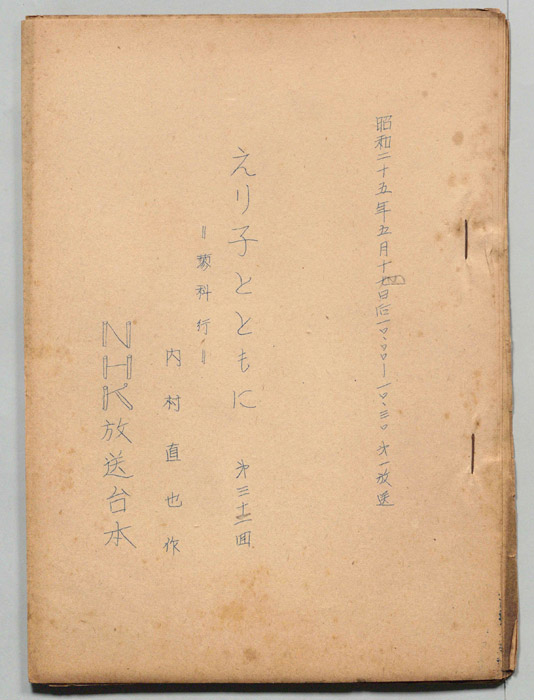 昭和二十五年五月十九日后一〇、〇〇ー一〇、三〇 第一放送
えり子とともに 第三十二回
〃蓼科行〃
内村直也作
NHK放送台本